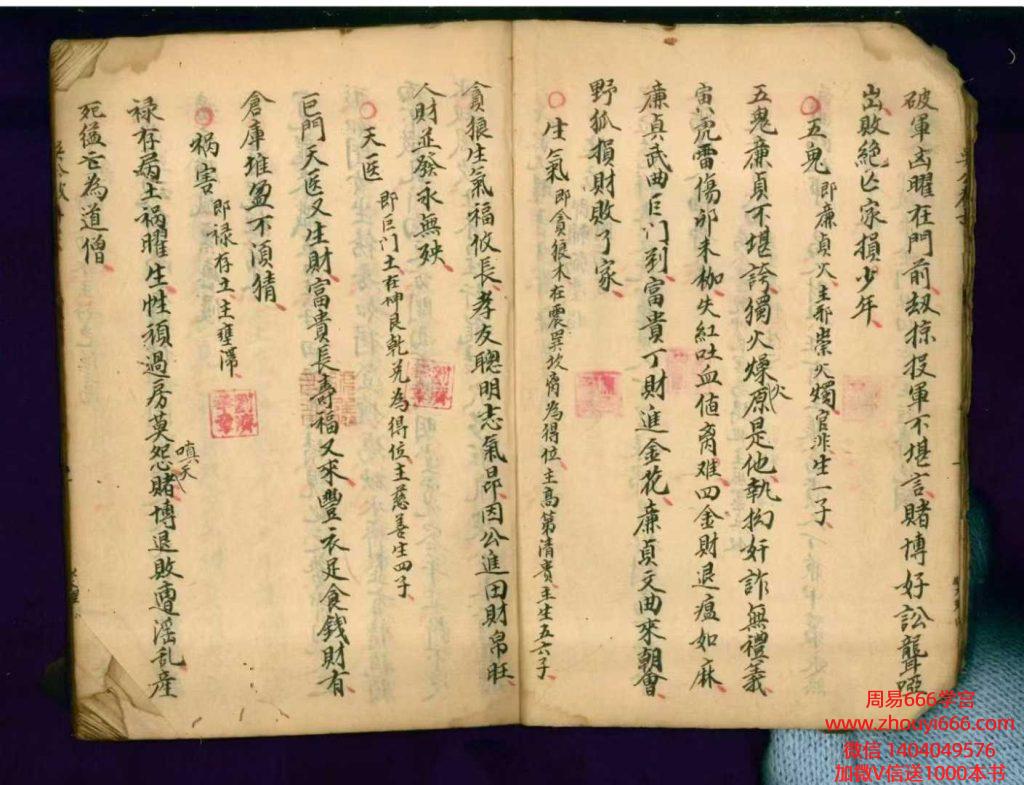 破軍凶曜在門前劫掠投軍不堪言賭博好訟聾啞
出敗絕亡家損少年
○五鬼 即廉貞火主邪祟火燭官非生一子
五鬼廉貞不堪誇獨火燥火原是他執拗奸詐無禮義
寅虎雷傷卯未枷失紅吐血值离难四金財退瘟如麻
廉貞武曲巨门到富貴丁財進金花廉貞文曲來朝會
野狐損財敗了家
○生氣 即貪狼木在震巽坎离為得位主高第清貴主生五六子
貪狼生氣福攸長孝友聰明志氣昂因公進田財帛旺
人財並發永無殃
○天医 即巨门土在坤艮乾兑為得位主慈善生四子
巨門天医又生財富貴長壽福又來豐衣足食錢財有
倉庫堆盈不須猜
○禍害 即禄存土主壅滯
禄存為土禍曜生性頑過房莫怨嗔天賭博退敗遭淫乱產
死為道僧
周易666学宫
www.zhouyi666.com
微信 1404049576
加微V信送1000本书